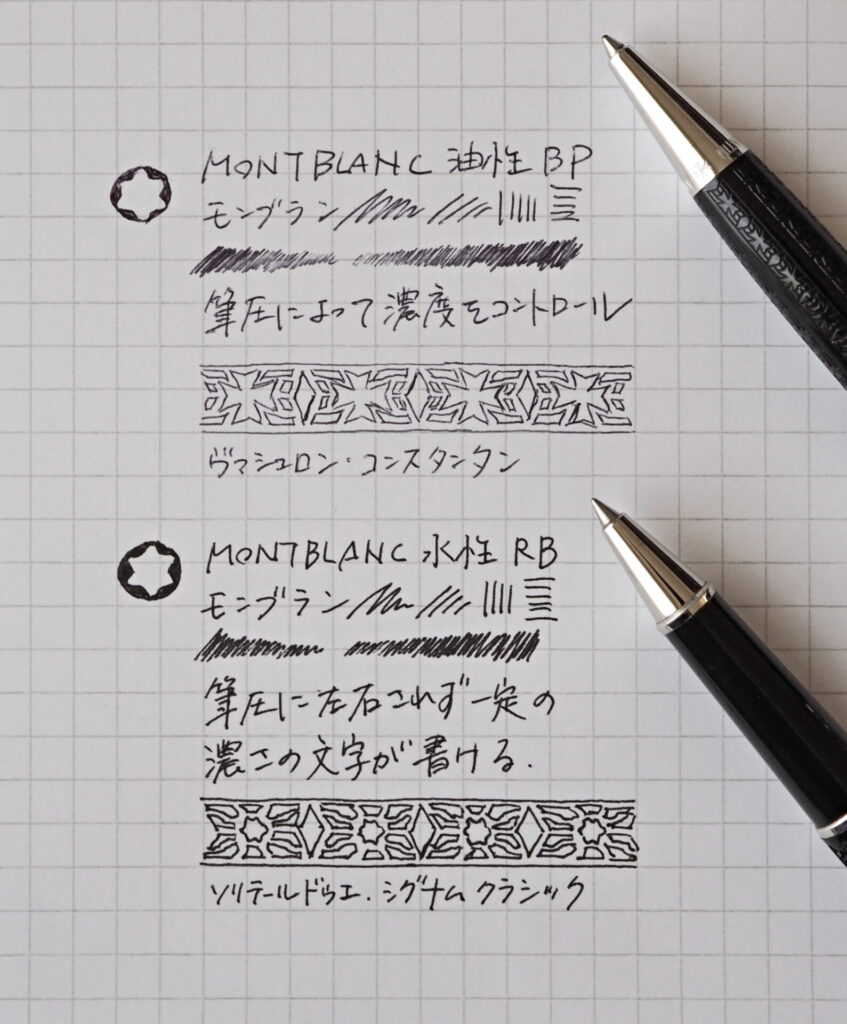 MONTBLANC 油性 BP
モンブラン
筆圧によって濃度をコントロール
ヴァシュロン・コンスタンタン
MONTBLANC 水性 RB
モンブラン
筆圧に左右されず一定の
濃さの文字が書ける.
ソリテールドゥエ.シグナムクラシック